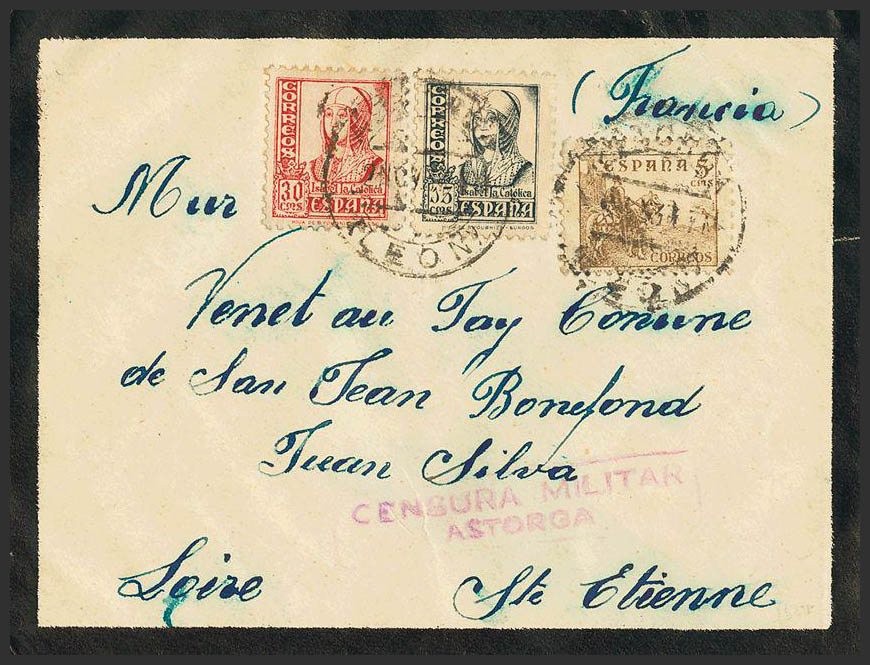 (Francia)
CORREOS
30 CTS
Isabel la Católica
ESPAÑA
CORREOS
35 CTS
Isabel la Católica
ESPAÑA
ESPAÑA 5
CTS
CORREOS
LEON
Mur
Venet au Tay Comune
de San Jean Bonefond
Juan Silva
CENSURA MILITAR
ASTORGA
Loire Ste Etienne